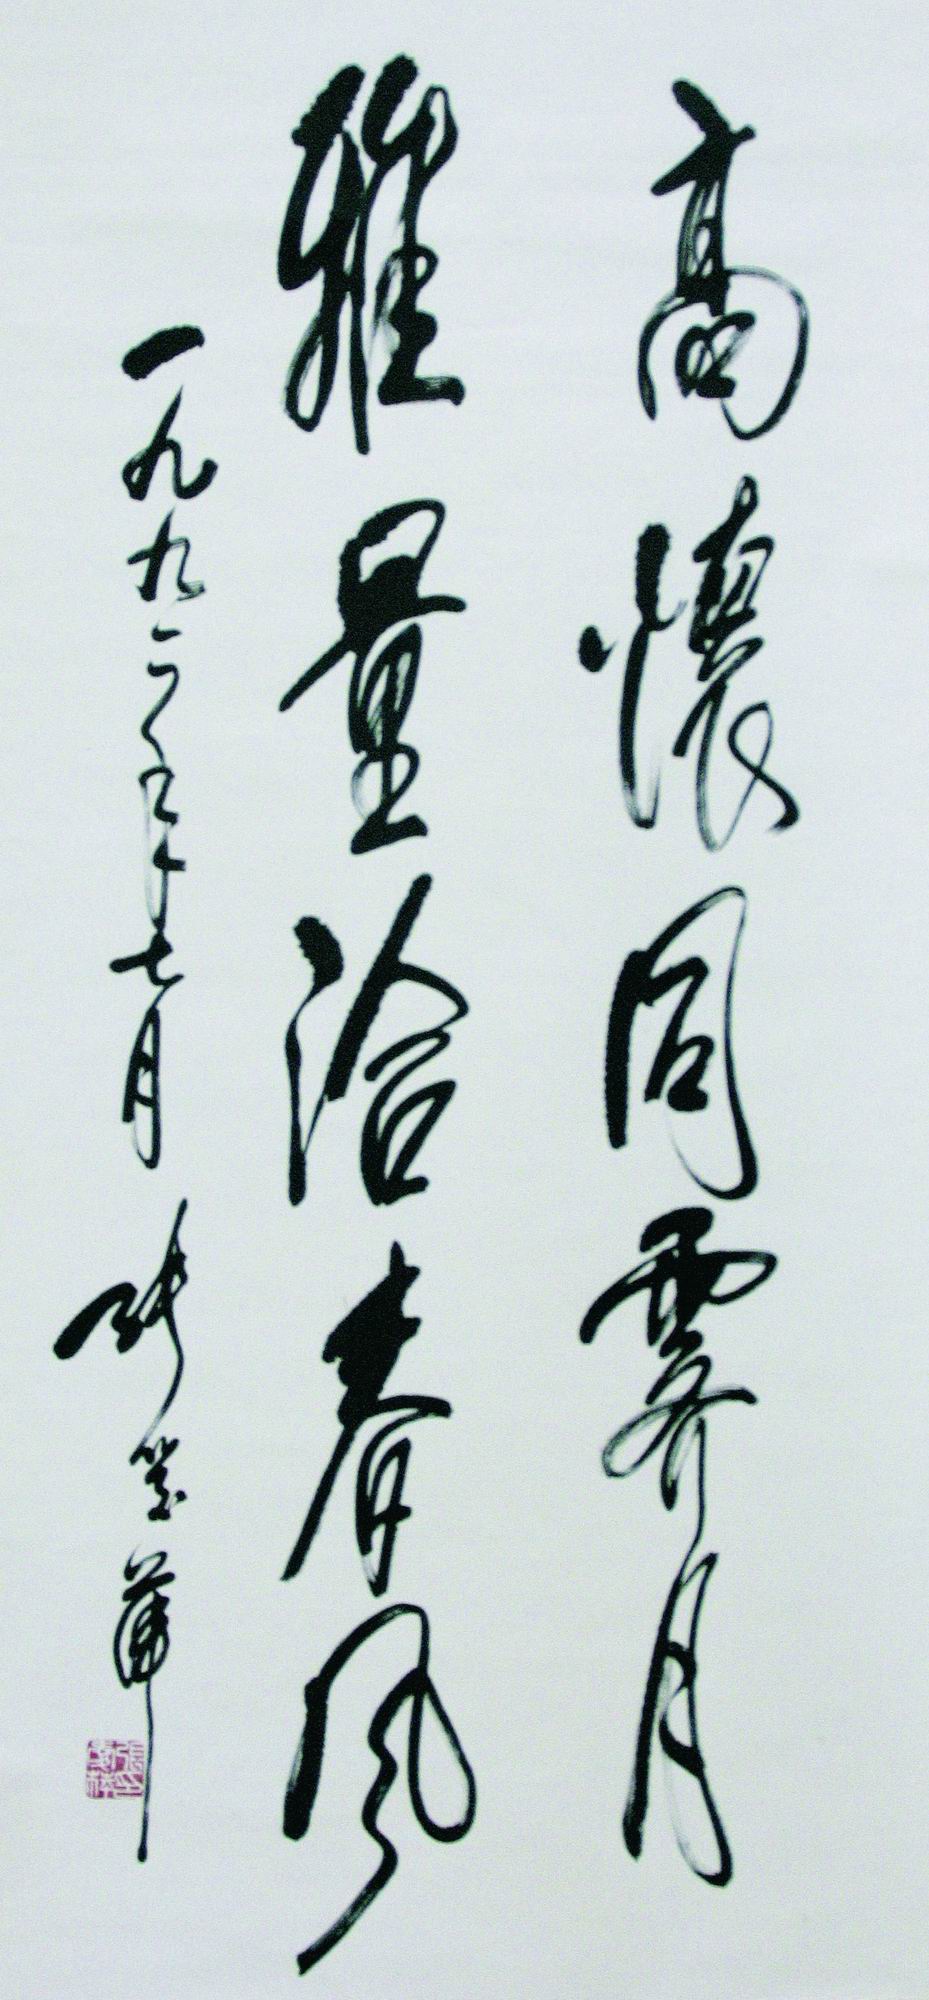 高懷同霽月
雅量洽春風
一九九二年七月 張登華